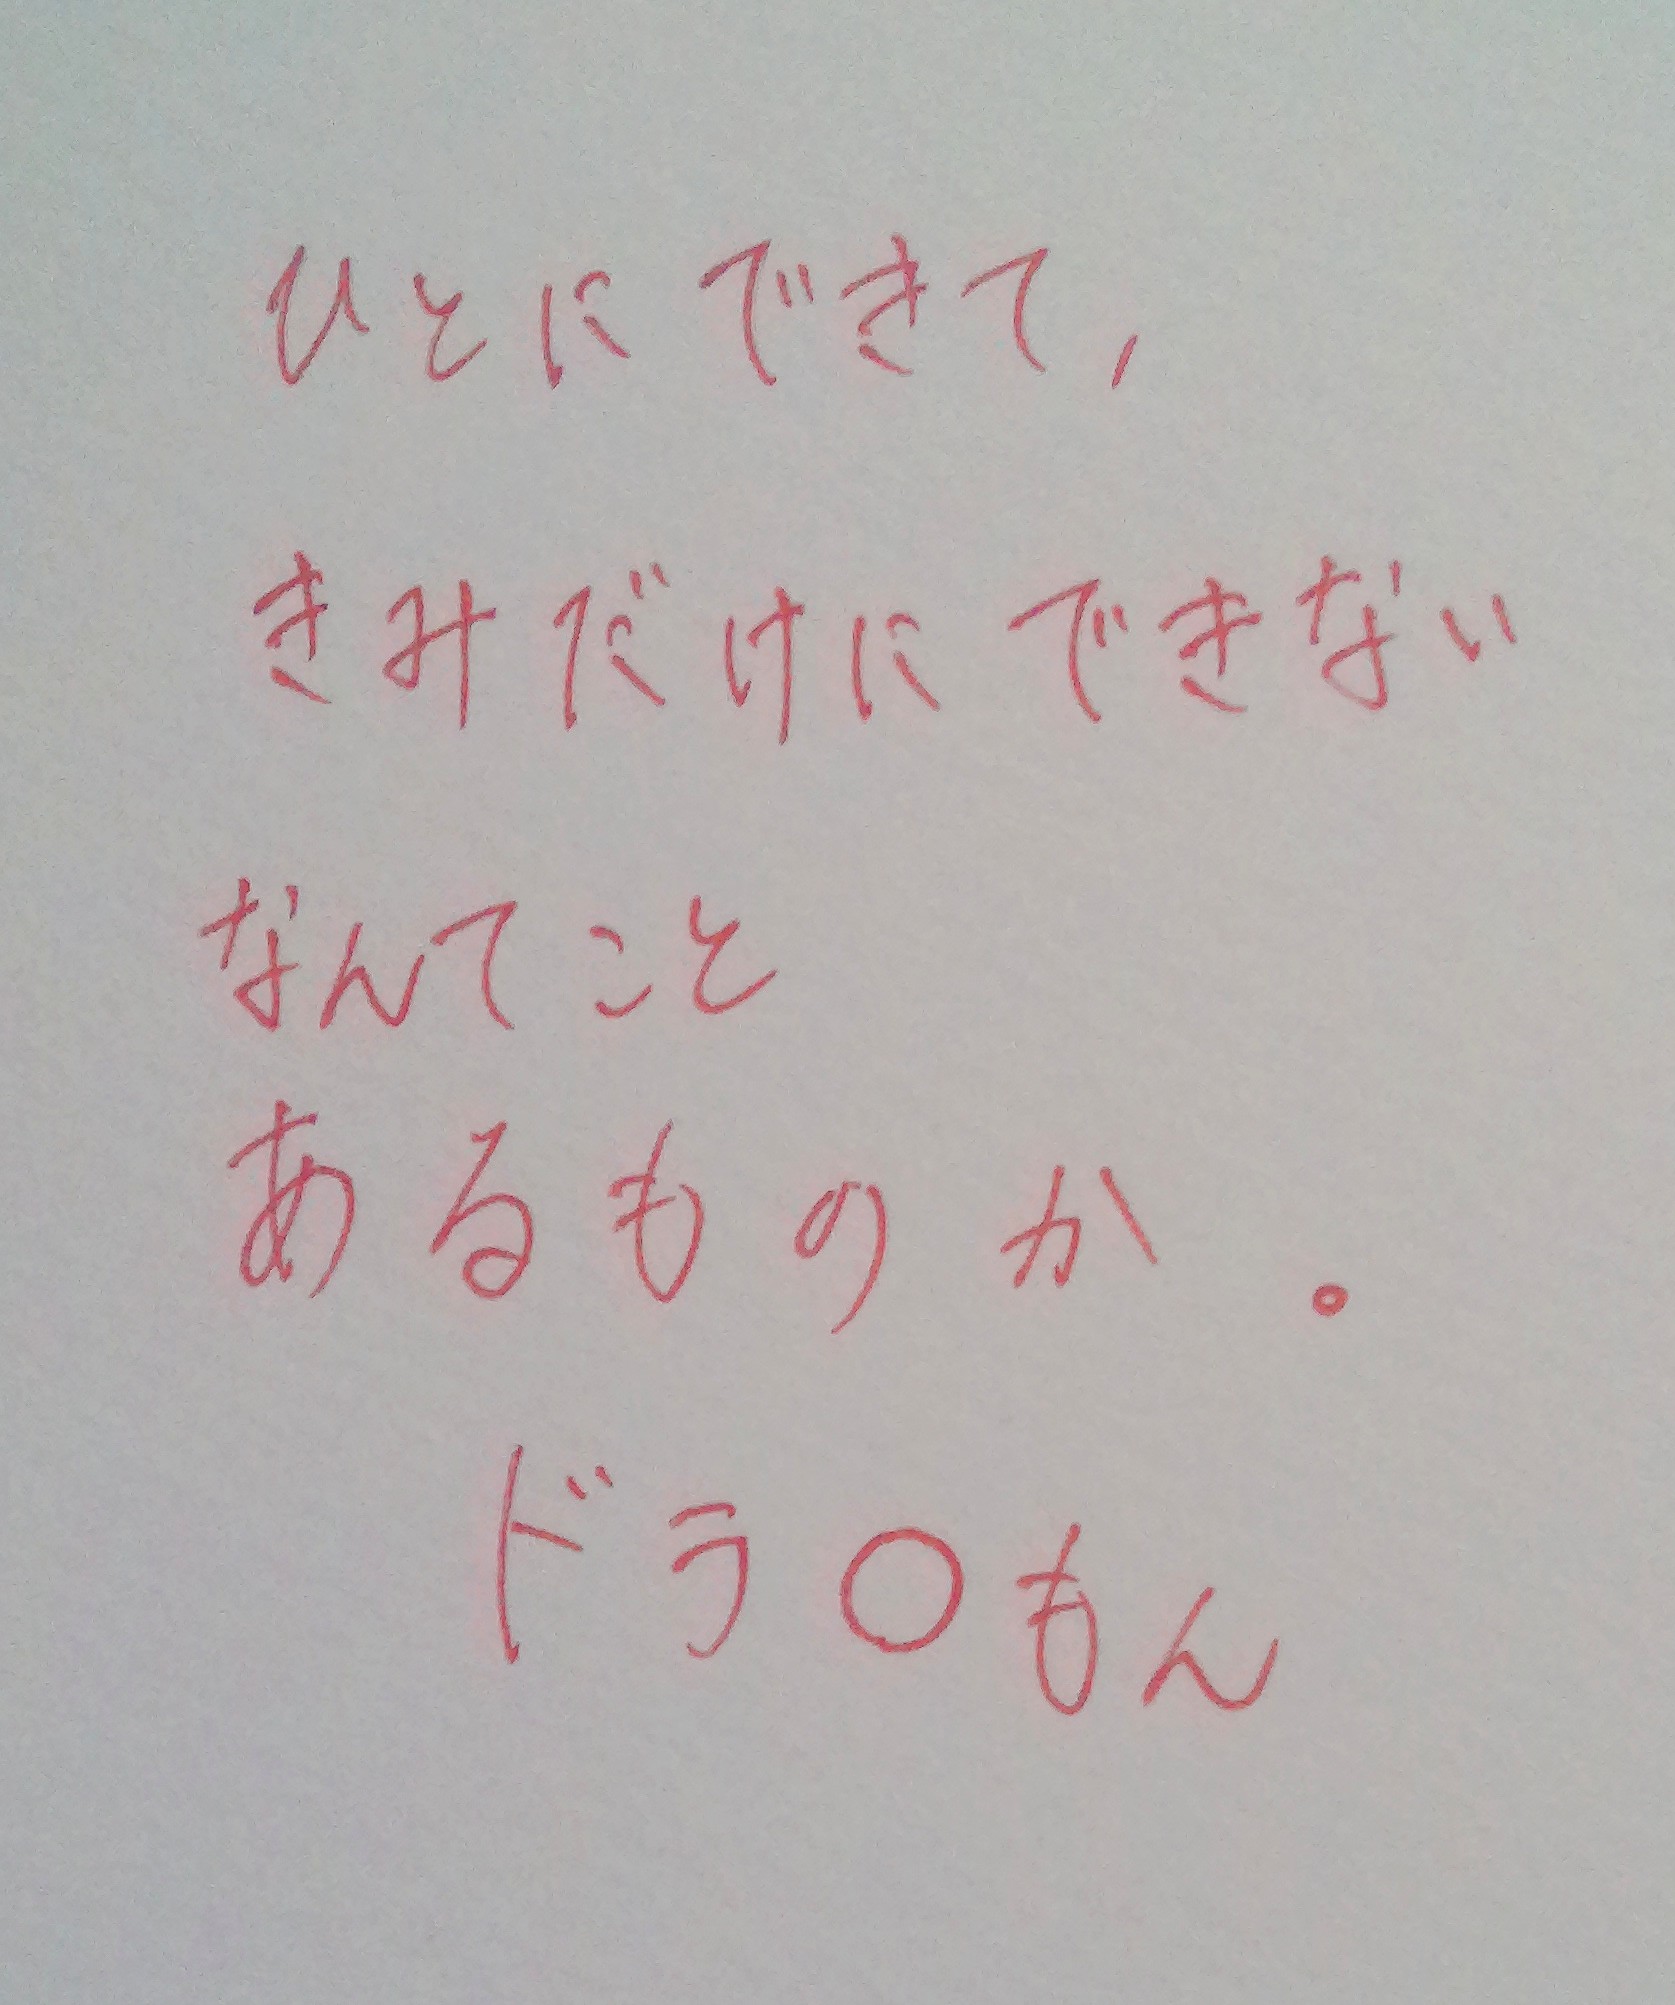 ひとにできて,
きみだけにできない
なんてこと
あるものか。
ドラ○もん